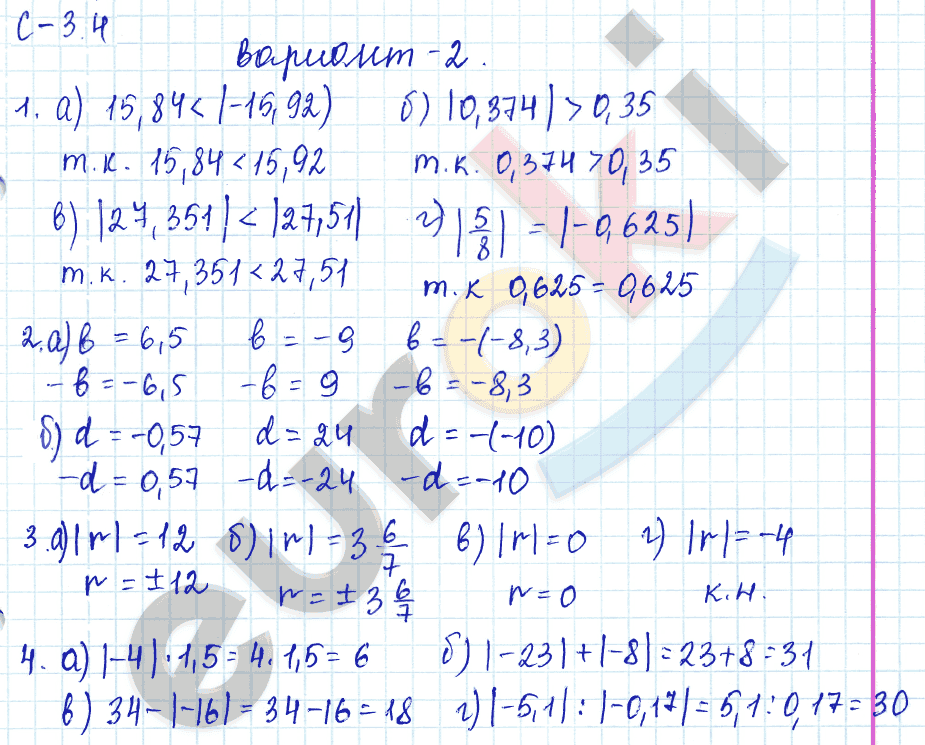 С-3.4
Вариант-2.
1. а) 15,84 < |-15,92) б) |0,374| > 0,35
т.к. 15,84 < 15,92 т.к. 0,374 > 0,35
в) |27,351| < |27,51| г) |5/8| = |-0,625|
т.к. 27,351 < 27,51 т.к 0,625 = 0,625
2. а) в = 6,5 в = -9 в = -(-8,3)
-в = -6,5 -в = 9 -в = -8,3
б) d = -0,57 d = 24 d = -(-10)
-d = 0,57 -d = -24 -d = -10
3. а) |r| = 12 б) |r| = 3 6/7 в) |r| = 0 г) |r| = -4
r = ±12 r = ± 3 6/7 r = 0 к.н.
4. а) |-4| · 1,5 = 4 · 1,5 = 6 б) |-23| + |-8| = 23+8 = 31
в) 34 - |-16| = 34 - 16 = 18 г) |-5,1| : |-0,17| = 5,1 : 0,17 = 30
euroki